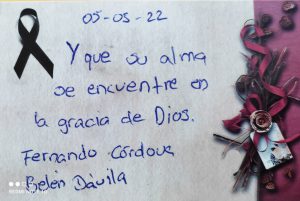 05-05-22
Y que su alma
se encuentre en
la gracia de Dios.
Fernando Córdova
Belén Dávila